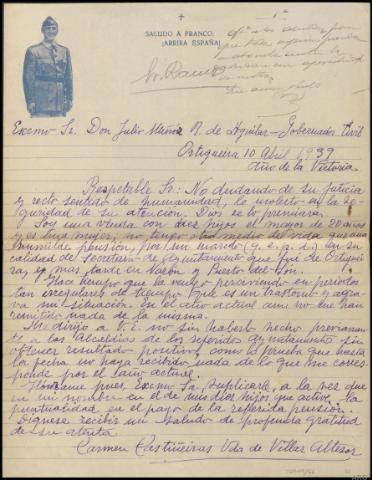 SALUDO A FRANCO:
¡ARRIBA ESPAÑA!
Excmo Sr. Don Julio Muñiz R. de Aguilar - Gobernador Civil
Ortigueira 10 Abril 1939
Año de la Victoria
Respetable Sr: No dudando de su justicia
y recto sentido de humanidad, le molesto en la se-
guridad de su atención. Dios se lo premiará.
Soy una viuda con diez hijos el mayor de 20 años
y es una mujer; no tengo otro medio de vida que una
humilde pensión por mi marido (q. e. g. d.) en su
calidad de Secretario de Ayuntamiento que fué de Ortiguei-
ra, y mas tarde en Narón y Puerto del Son.
Hace tiempo que la vengo percibiendo en periodos
tan irregulares de tiempo, que es un trastorno y agra-
va mi situación. En el año actual aun no me han
remitido nada de la misma.
Me dirijo a V. E. no sin haberlo hecho previamen-
te a los Alcaldias de los referidos Ayuntamientos sin
obtener resultado positivo, como lo prueba que hasta
la fecha no haya recibido nada de lo que me corres-
ponde por el año actual.
Permítame pues, Excmo Sr. suplicarle, a la vez que
en mi nombre en el de mis diez hijos que active, la
puntualidad en el pago de la referida pensión.
Dígnese recibir un saludo de profunda gratitud
de su atenta
Carmen Castiñeiras Vda de Villar Altesor